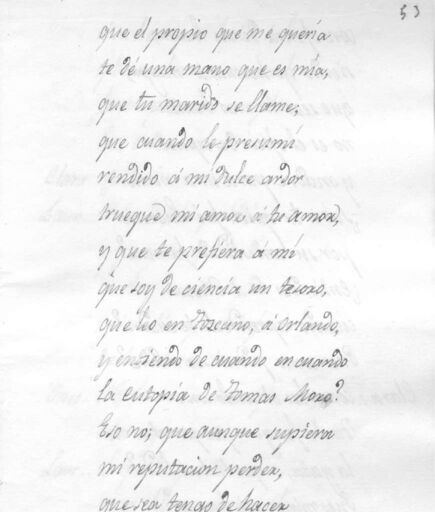 53
que el propio que me queria
te dé una mano que es mia,
que tu marido se llame;
que cuando le presumí
rendido á mi dulce ardor
trueque mi amor á tu amor,
y que te prefiera á mí
que soy de ciencia un tesoro,
que leo en Toscano, á Orlando,
y entiendo de cuando en cuando
la eutopia de Tomas Moro?
Eso no; que aunque supiera
mi reputacion perder,
que sea tengo de hacer